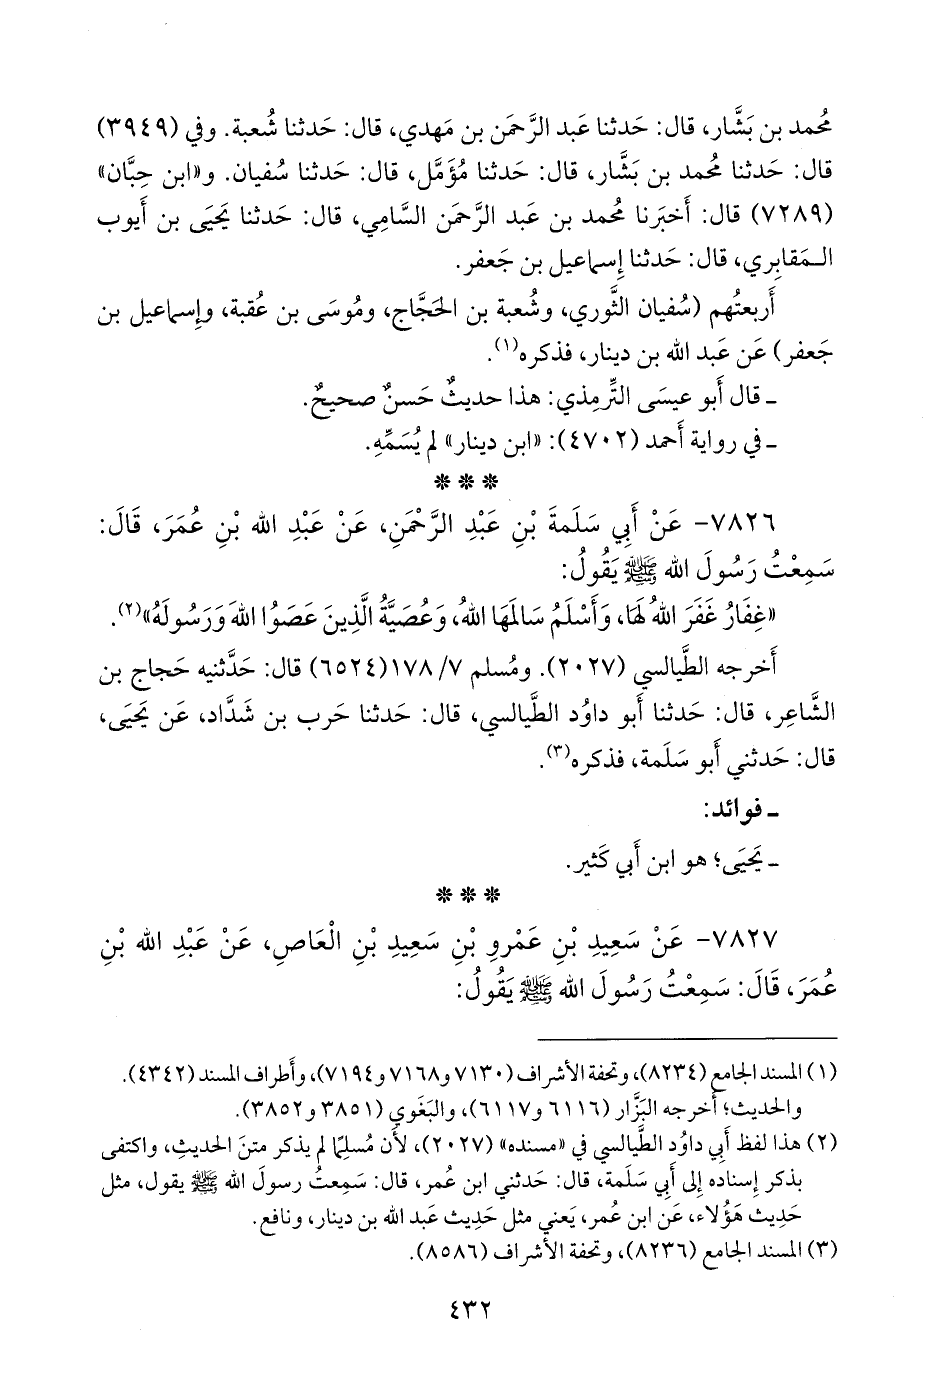 محُمد بن بَشَّار، قال: حَدثنا عَبد الرَّحمَن بن مَهدي، قال: حَدثنا شُعبة. وفي (٣٩٤٩)
قال: حَدثنا محُمد بن بَشَّار، قال: حَدثنا مُؤَمَّل، قال: حَدثنا سُفيان. و«ابن حِبَّان»
(٧٢٨٩) قال: أَخبَرنا محُمد بن عَبد الرَّحمَن السَّامي، قال: حَدثنا يَحيَى بن أَيوب
الـمَقابِري، قال: حَدثنا إِسماعيل بن جَعفر.
أَربعتُهم (سُفيان الثَّوري، وشُعبة بن الحَجَّاج، ومُوسَى بن عُقبة، وإِسماعيل بن
جَعفر) عَن عَبد الله بن دينار، فذكره(١).
ـ قال أَبو عيسَى التِّرمِذي: هذا حديثٌ حَسنٌ صحيحٌ.
ـ في رواية أَحمد (٤٧٠٢): «ابن دينار» لم يُسَمِّهِ.
* * *
٧٨٢٦- عَنْ أَبِي سَلَمةَ بْنِ عَبْدِ الرَّحْمَنِ، عَنْ عَبْدِ الله بْنِ عُمَرَ، قَالَ:
سَمِعْتُ رَسُولَ الله ﷺ يَقُولُ:
«غِفَارُ غَفَرَ اللهُ لَهَا، وَأَسْلَمُ سَالَمَهَا اللهُ، وَعُصَيَّةُ الَّذِينَ عَصَوُا اللهَ وَرَسُولَهُ»(٢).
أَخرجه الطَّيالسي (٢٠٢٧). ومُسلم ٧/ ١٧٨(٦٥٢٤) قال: حَدَّثنيه حَجاج بن
الشَّاعِر، قال: حَدثنا أَبو داوُد الطَّيالسي، قال: حَدثنا حَرب بن شَدَّاد، عَن يَحيَى،
قال: حَدثني أَبو سَلَمة، فذكره(٣).
ـ فوائد:
ـ يَحيَى؛ هو ابن أَبي كَثير.
* * *
٧٨٢٧- عَنْ سَعِيدِ بْنِ عَمْرِو بْنِ سَعِيدِ بْنِ الْعَاصِ، عَنْ عَبْدِ الله بْنِ
عُمَرَ، قَالَ: سَمِعْتُ رَسُولَ الله ﷺ يَقُولُ:
(١) المسند الجامع (٨٢٣٤)، وتحفة الأشراف (٧١٣٠ و٧١٦٨ و٧١٩٤)، وأَطراف المسند (٤٣٤٢).
والحديث؛ أَخرجه البَزَّار (٦١١٦ و٦١١٧)، والبَغَوي (٣٨٥١ و٣٨٥٢).
(٢) هذا لفظ أَبي داوُد الطَّيالسي في «مسنده» (٢٠٢٧)، لأَن مُسلِمًا لم يذكر متنَ الحديثِ، واكتفى
بذكر إِسناده إِلى أَبي سَلَمة، قال: حَدثني ابن عُمر، قال: سَمِعتُ رسولَ الله ﷺ يقول، مثل
حَدِيث هَؤُلاء، عَن ابن عُمر، يَعني مثل حَديث عَبد الله بن دينار، ونافع.
(٣) المسند الجامع (٨٢٣٦)، وتحفة الأشراف (٨٥٨٦).
٤٣٢